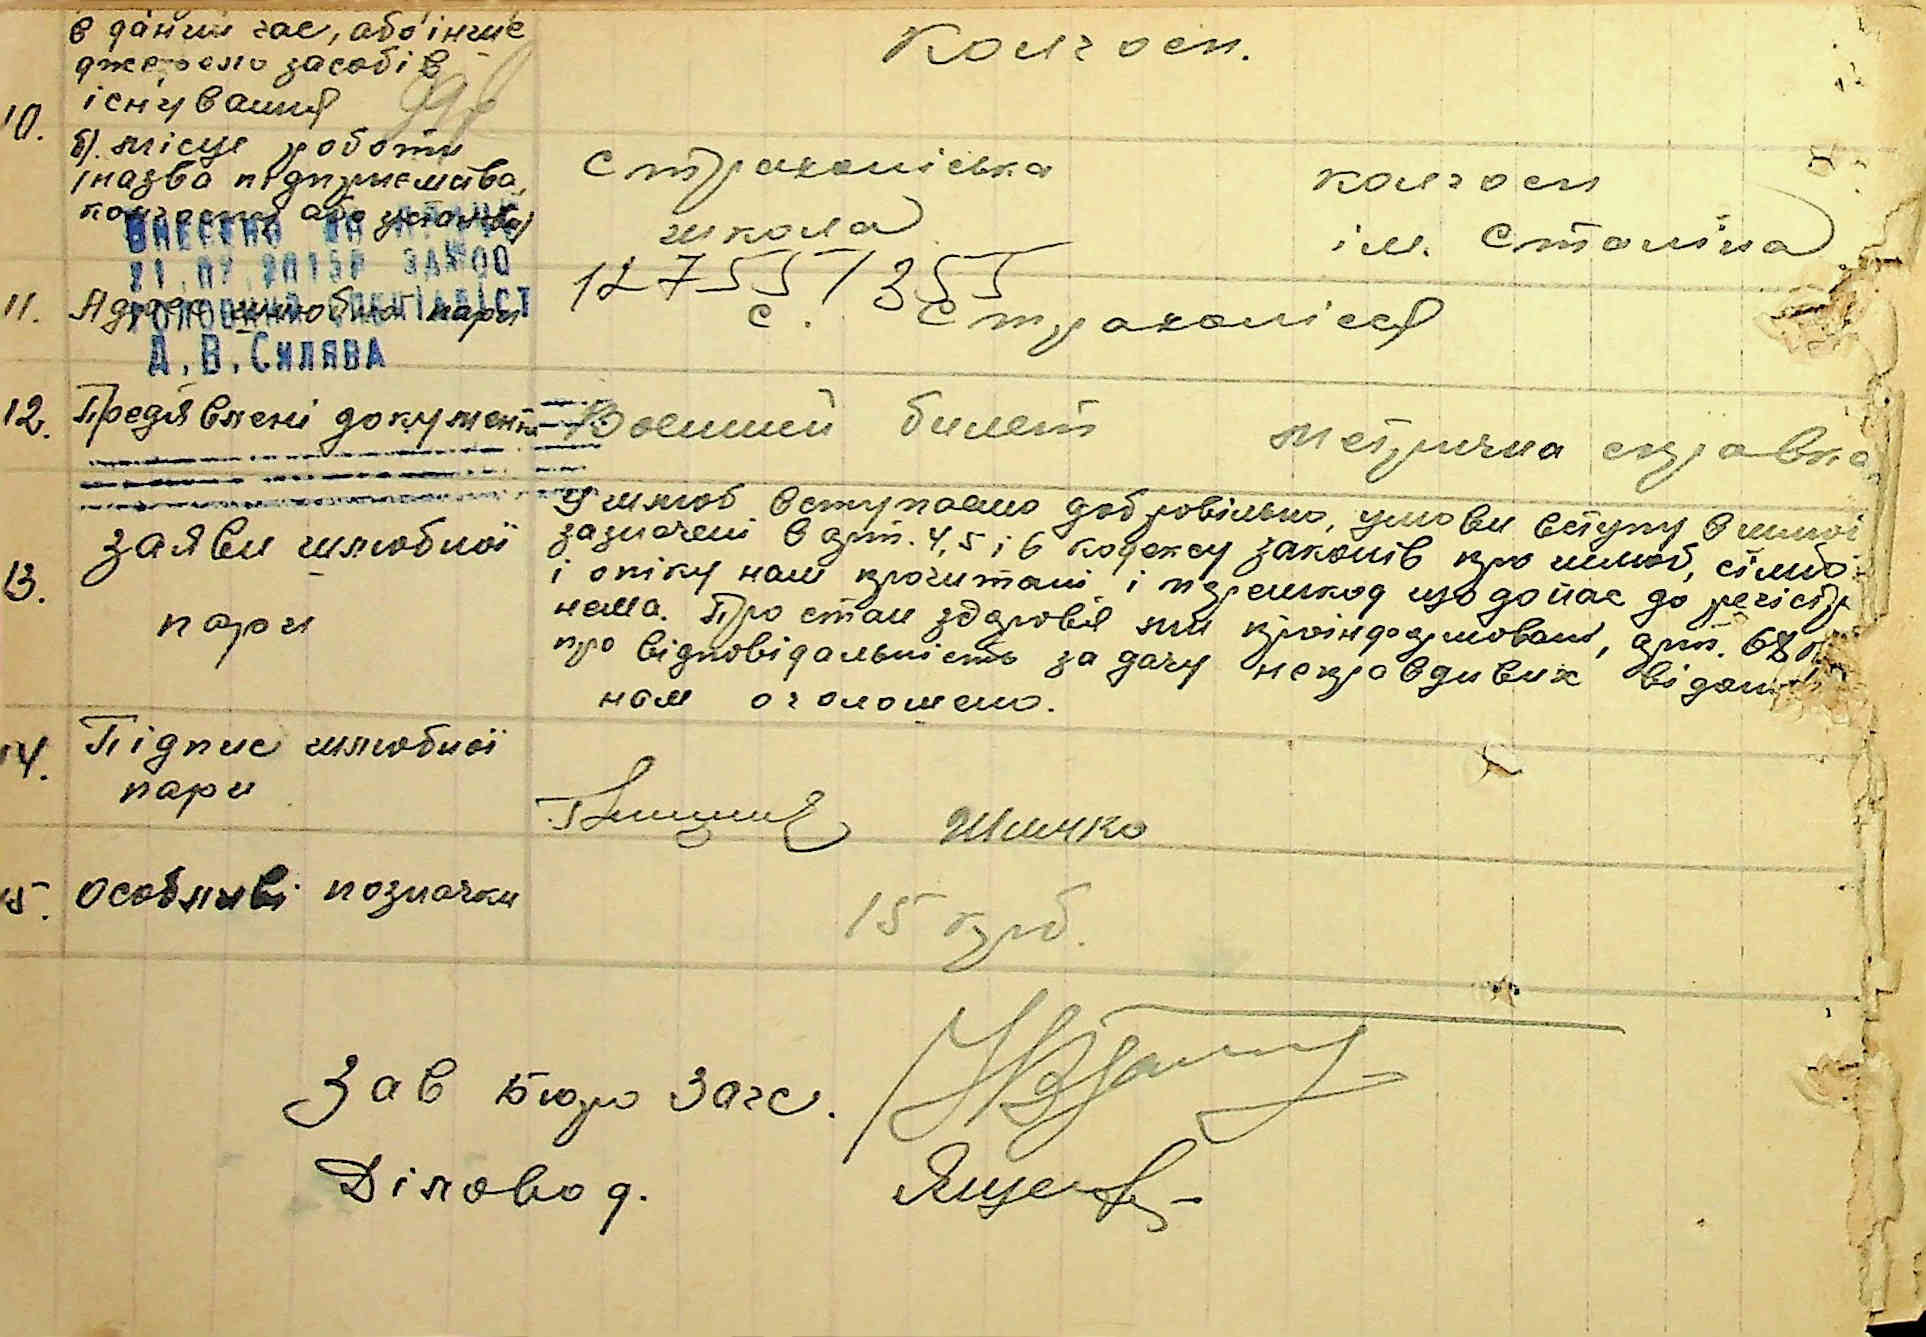 в даний час, або інше
джерело засобів
існування
Колгосп.
10.
б). місце роботи
/назва підприємства,
колгоспу або установи/
Страхоліська
школа
колгосп
ім. Сталіна
ВНЕСЕНО
21.07.2015Р
ГОЛОВНИЙ СПЕЦІАЛІСТ
А.В.Силява
127551/355
11. Адреса шлюбної пари
с. Страхолісся
12. Предявлені документи
Военний билет
метрична справка
13. Заяви шлюбної
пари
У шлюб вступаємо добровільно, умови вступу в шлюб
зазначені в арт. 4,5 і 6 кодексу законів про шлюб, сімю
і опіку нам прочитані і перешкод щодо нас до реєстр
нема. Про стан здоровя ми проінформовані, арт. 68
про відповідальність за дачу неправдивих відом
нам оголошено.
14. Підпис шлюбної
пари
Шичко
15. Особливі позначки
15 крб.
Зав Бюро Загс.
Діловод.